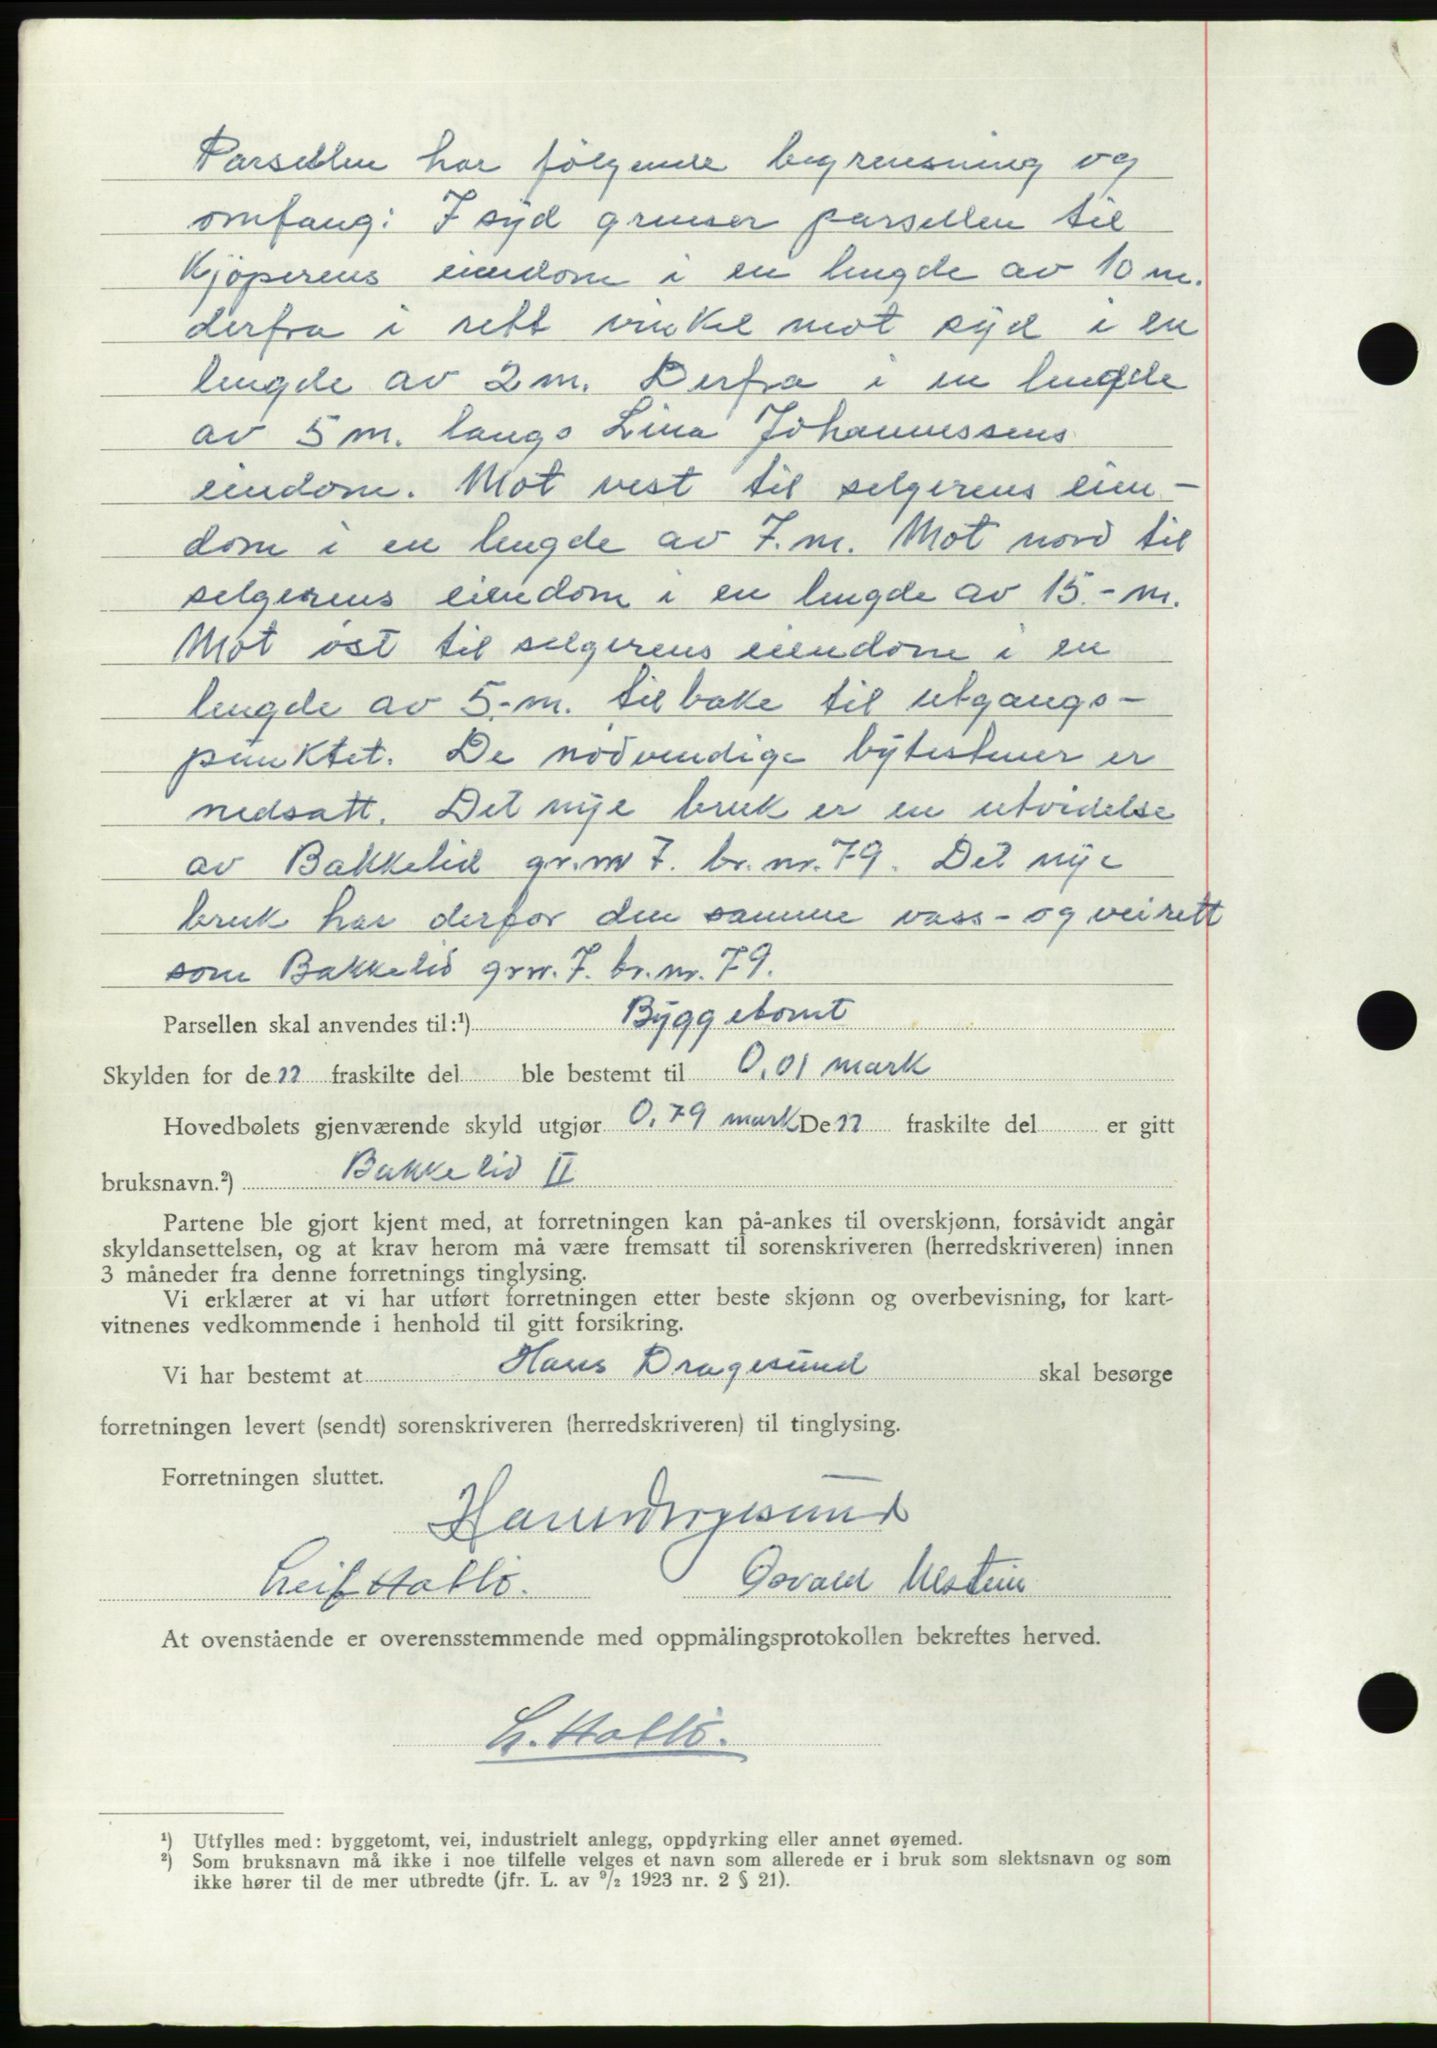 Parsellen har følgende begrensning og
omfang: I syd grenser parsellen til
Kjøperens eiendom i en lengde av 10 m.
derfra i rett vinkel mot syd i en
lengde av 2 m. Derfra i en lengde
av 5 m. langs Lina Johannessens
eiendom. Mot vest til selgerens eien-
dom i en lengde av 7. m. Mot nord til
selgerens eiendom i en lengde av 15.- m.
Mot øst til selgerens eiendom i en
lengde av 5.-m. tilbake til utgangs-
punktet. De nødvendige bytestener er
nedsatt. Det nye bruk er en utvidelse
av Bakkelid gr.nr 7. br. nr. 79. Det nye
bruk har derfor den samme vass- og veirett
som Bakkelid grnr. 7. br. nr. 79.
Parsellen skal anvendes til:¹) Byggetomt
Skylden for de nn fraskilte del ble bestemt til 0,01 mark
Hovedbølets gjenværende skyld utgjør 0,79 mark De nn fraskilte del er gitt
bruksnavn.²) Bakkelid II
Partene ble gjort kjent med, at forretningen kan på-ankes til overskjønn, forsåvidt angår
skyldansettelsen, og at krav herom må være fremsatt til sorenskriveren (herredskriveren) innen
3 måneder fra denne forretnings tinglysing.
Vi erklærer at vi har utført forretningen etter beste skjønn og overbevisning, for kart-
vitnenes vedkommende i henhold til gitt forsikring.
Vi har bestemt at Hans Dragesund skal besørge
forretningen levert (sendt) sorenskriveren (herredskriveren) til tinglysing.
Forretningen sluttet.
Hans Dragesund
Leif Hatlø. Osvald Ulstein
At ovenstående er overensstemmende med oppmålingsprotokollen bekreftes herved.
L. Hatlø.
¹) Utfylles med: byggetomt, vei, industrielt anlegg, oppdyrking eller annet øyemed.
²) Som bruksnavn må ikke i noe tilfelle velges et navn som allerede er i bruk som slektsnavn og som
ikke hører til de mer utbredte (jfr. L. av ⁹/₂ 1923 nr. 2 § 21).